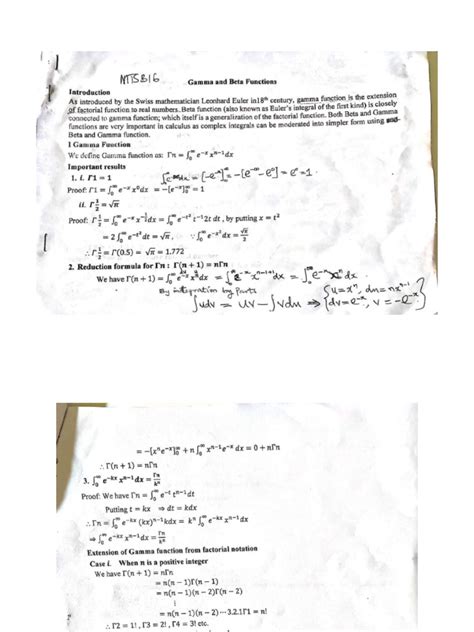 MTS316
Gamma and Beta Functions
Introduction
As introduced by the Swiss mathematician Leonhard Euler in18ᵗʰ century, gamma function is the extension
of factorial function to real numbers. Beta function (also known as Euler's integral of the first kind) is closely
connected to gamma function; which itself is a generalization of the factorial function. Both Beta and Gamma
functions are very important in calculus as complex integrals can be moderated into simpler form using and
Beta and Gamma function.
1 Gamma Function
We define Gamma function as: Γn = ∫₀^∞ e^-x x^n-1 dx
Important results
1. i. Γ1 = 1
∫₀^∞ e^-x dx = [-e^-x]₀^∞ = -[e^-∞ - e⁰] = e⁰ = 1
Proof: Γ1 = ∫₀^∞ e^-x x⁰dx = -[e^-x]₀^∞ = 1
ii. Γ1/2 = √π
Proof: Γ1/2 = ∫₀^∞ e^-x x^-1/2 dx = ∫₀^∞ e^-t² t^-1 2t dt , by putting x = t²
= 2 ∫₀^∞ e^-t² dt = √π , ∵ ∫₀^∞ e^-x² dx = √π/2
∴ Γ1/2 = Γ(0.5) = √π = 1.772
2. Reduction formula for Γn : Γ(n + 1) = nΓn
We have Γ(n + 1) = ∫₀^∞ e^-x x^n dx = ∫₀^∞ e^-x x^n-1+1 dx = ∫₀^∞ e^-x x^n dx
By integration by Parts
{u = x^n, du = nx^n-1
∫udv = uv - ∫vdu ⇒ {dv = e^-x, v = -e^-x}
= -[x^n e^-x]₀^∞ + n ∫₀^∞ x^n-1 e^-x dx = 0 + nΓn
∴ Γ(n + 1) = nΓn
3. ∫₀^∞ e^-kx x^n-1 dx = Γn/k^n
Proof: We have Γn = ∫₀^∞ e^-t t^n-1 dt
Putting t = kx ⇒ dt = kdx
∴ Γn = ∫₀^∞ e^-kx (kx)^n-1 kdx = k^n ∫₀^∞ e^-kx x^n-1 dx
⇒ ∫₀^∞ e^-kx x^n-1 dx = Γn/k^n
Extension of Gamma function from factorial notation
Case i. When n is a positive integer
We have Γ(n + 1) = nΓn
= n(n − 1)Γ(n − 1)
= n(n − 1)(n − 2)Γ(n − 2)
⋮
= n(n − 1)(n − 2) ⋯ 3.2.1Γ1 = n!
∴ Γ2 = 1! , Γ3 = 2! , Γ4 = 3! etc.